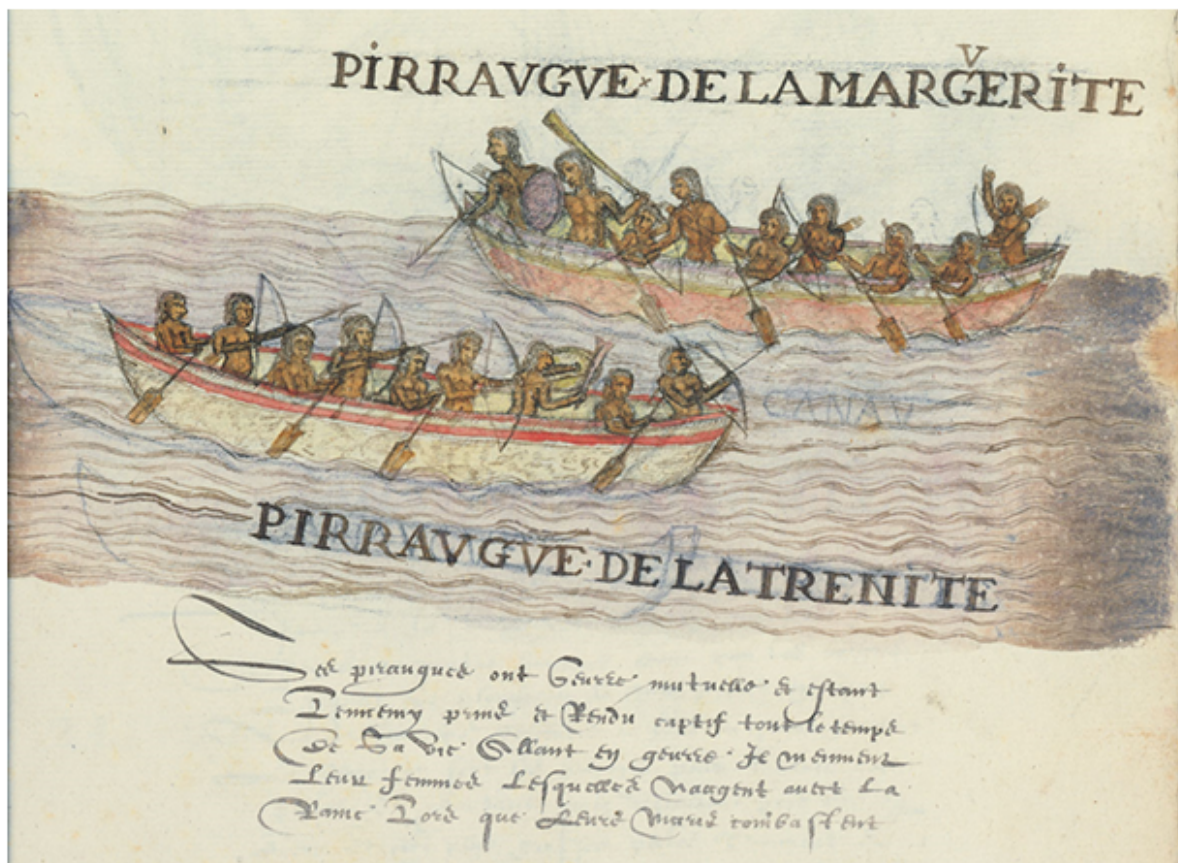 PIRRAVGVE DE LA MARGVERITE
CANAV
PIRRAVGVE DE LA TRENITE
Les piraugues ont Geurre mutuelle et estant
Lennemy prins et Rendu captif tout le temps
De Sa vie Allant en geurre Il mennent
Leur femmes Lesquelles Naagent avect La
Rame Lors que Leurs Maris combastent